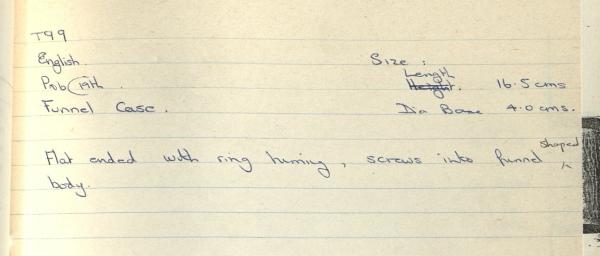 T99
English.
Size :
Length
Height. 16.5 cms
Prob C19th.
Funnel Case.
Dia Base 4.0 cms.
Flat ended with ring turning, screws into funnel shaped
body.